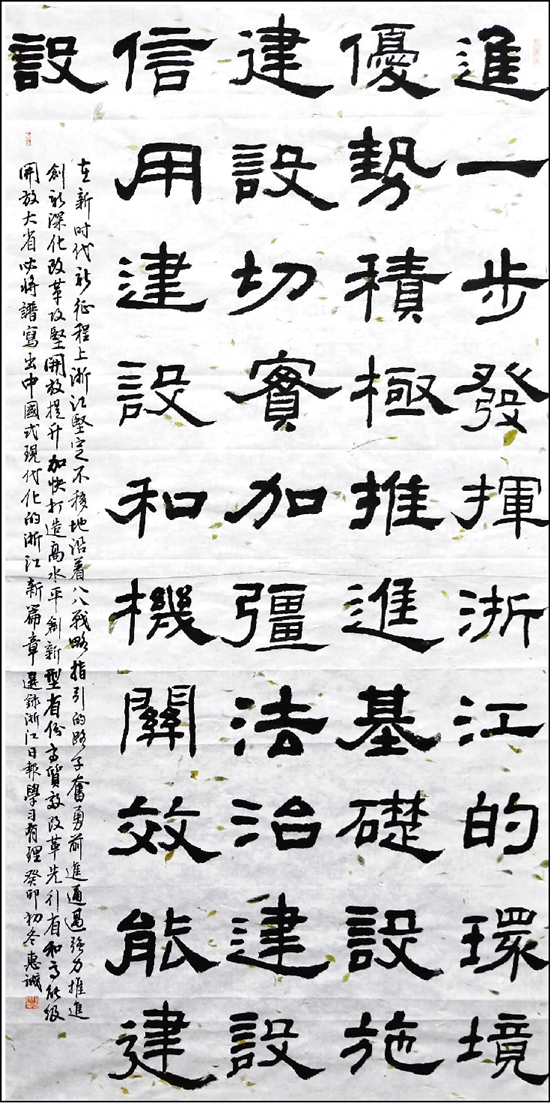 進一步發揮浙江的環境
優勢積極推進基礎設施
建設切實加彊法治建設
信用建設和機關效能建
設
在新时代新征程上浙江堅定不移地沿着八八戰略指引的路子奮勇前進通過強力推進
創新深化改革攻堅開放提升加快打造高水平創新型省份高質效改革先行省和高能級
開放大省必將譜寫出中國式現代化的浙江新篇章 選錄浙江日報學習有理 癸卯初冬惠誠